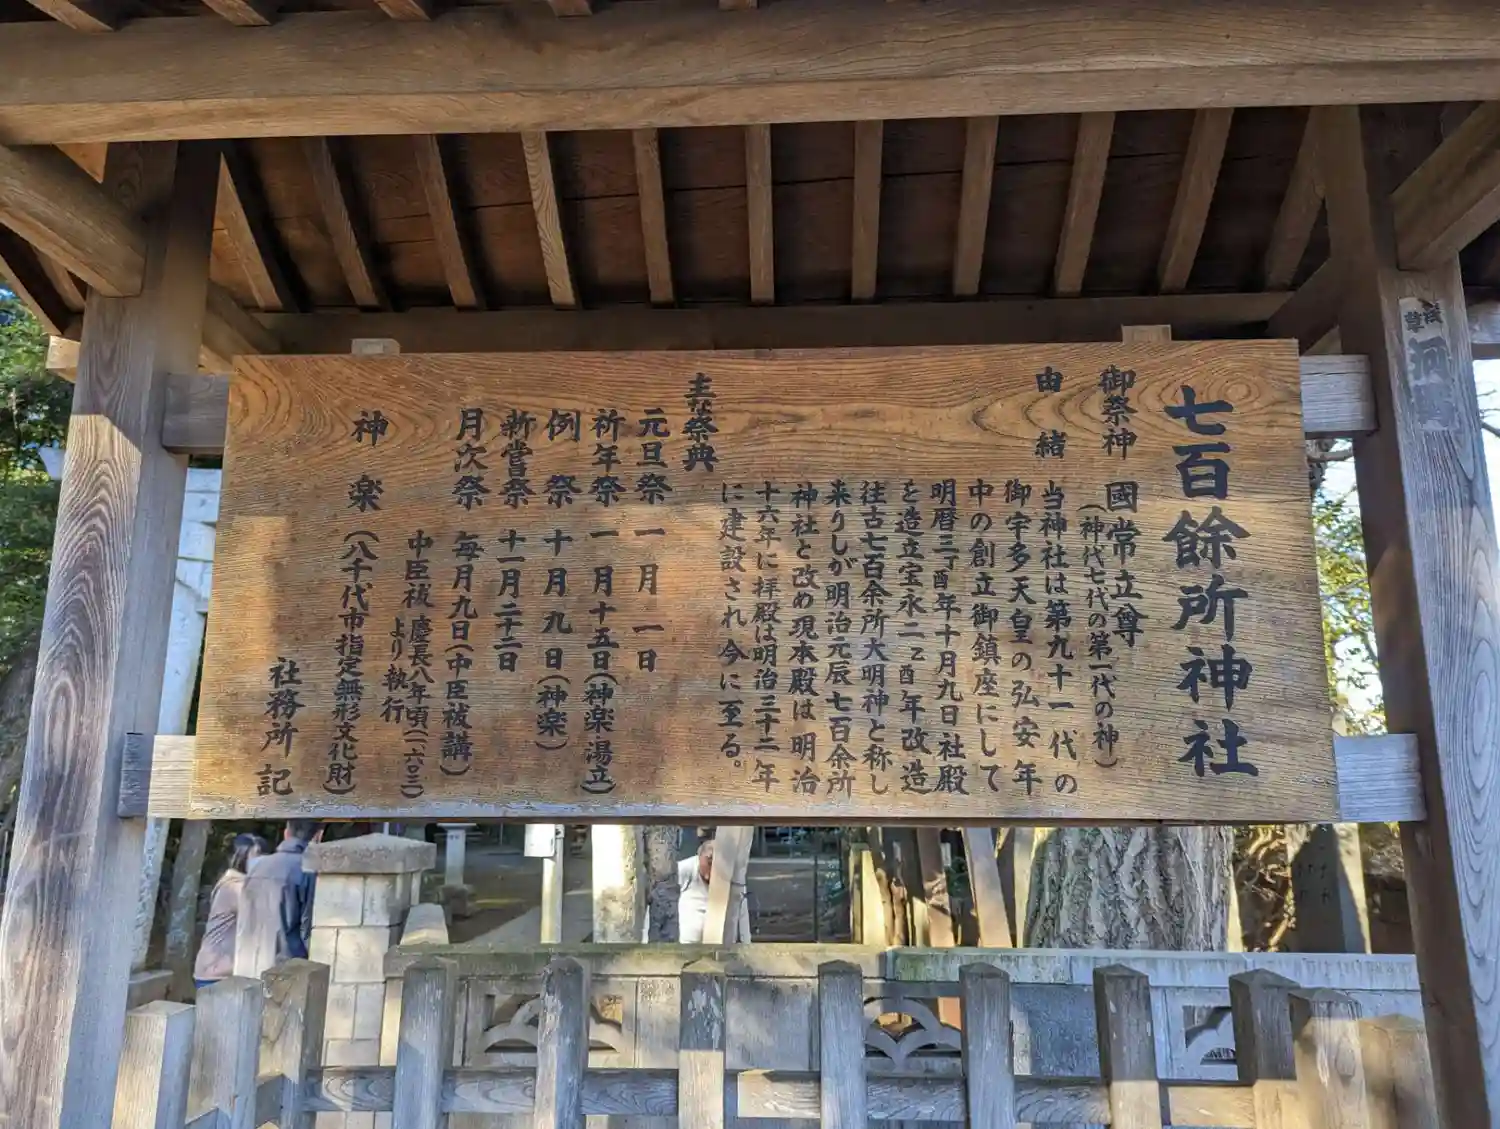 七百餘所神社
御祭神 國常立尊
(神代七代の第一代の神)
由緒 当神社は第九十一代の
御宇多天皇の弘安年
中の創立御鎮座にして
明暦三丁酉年十月九日社殿
を造立宝永二乙酉年改造
往古七百余所大明神と称し
来りしが明治元辰七百余所
神社と改め現本殿は明治
十六年に拝殿は明治三十二年
に建設され今に至る。
主な祭典
元旦祭 一月一日
祈年祭 一月十五日(神楽湯立)
例祭 十月九日(神楽)
新嘗祭 十一月二十三日
月次祭 毎月九日(中臣祓講)
中臣祓慶長八年頃(一六〇三)
より執行
神楽(八千代市指定無形文化財)
社務所記
浅草